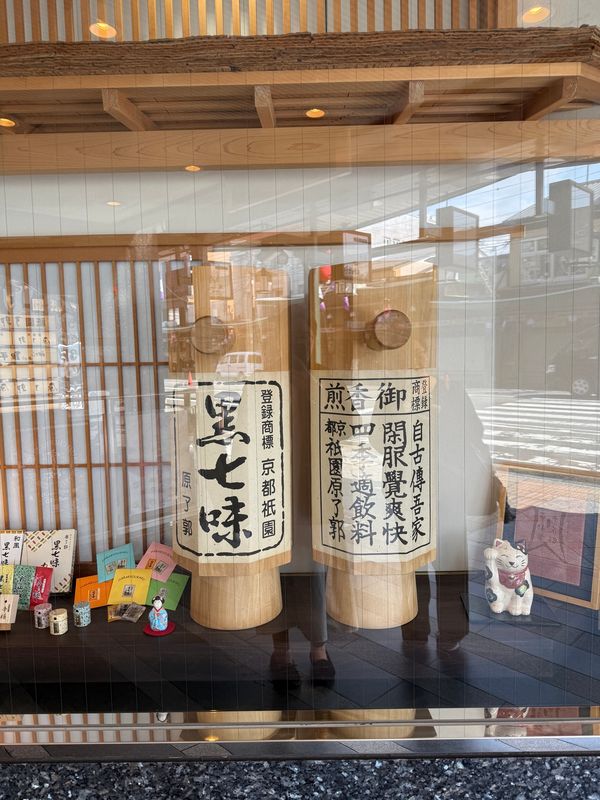 登録商標 京都祇園
黒七味
原了郭
登録商標
御香煎
自古傳吾家
閑服覺爽快
四季適飲料
京都祇園原了郭
和風
黒七味